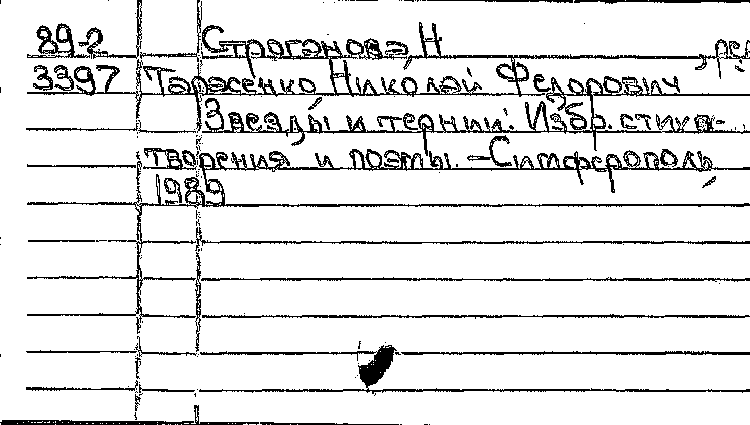 89-2 Строганова, Н , ред
3397 Тарасенко Николай Федорович
Звезды и тернии: Избр. стихо-
творения и поэмы. - Симферополь,
1989